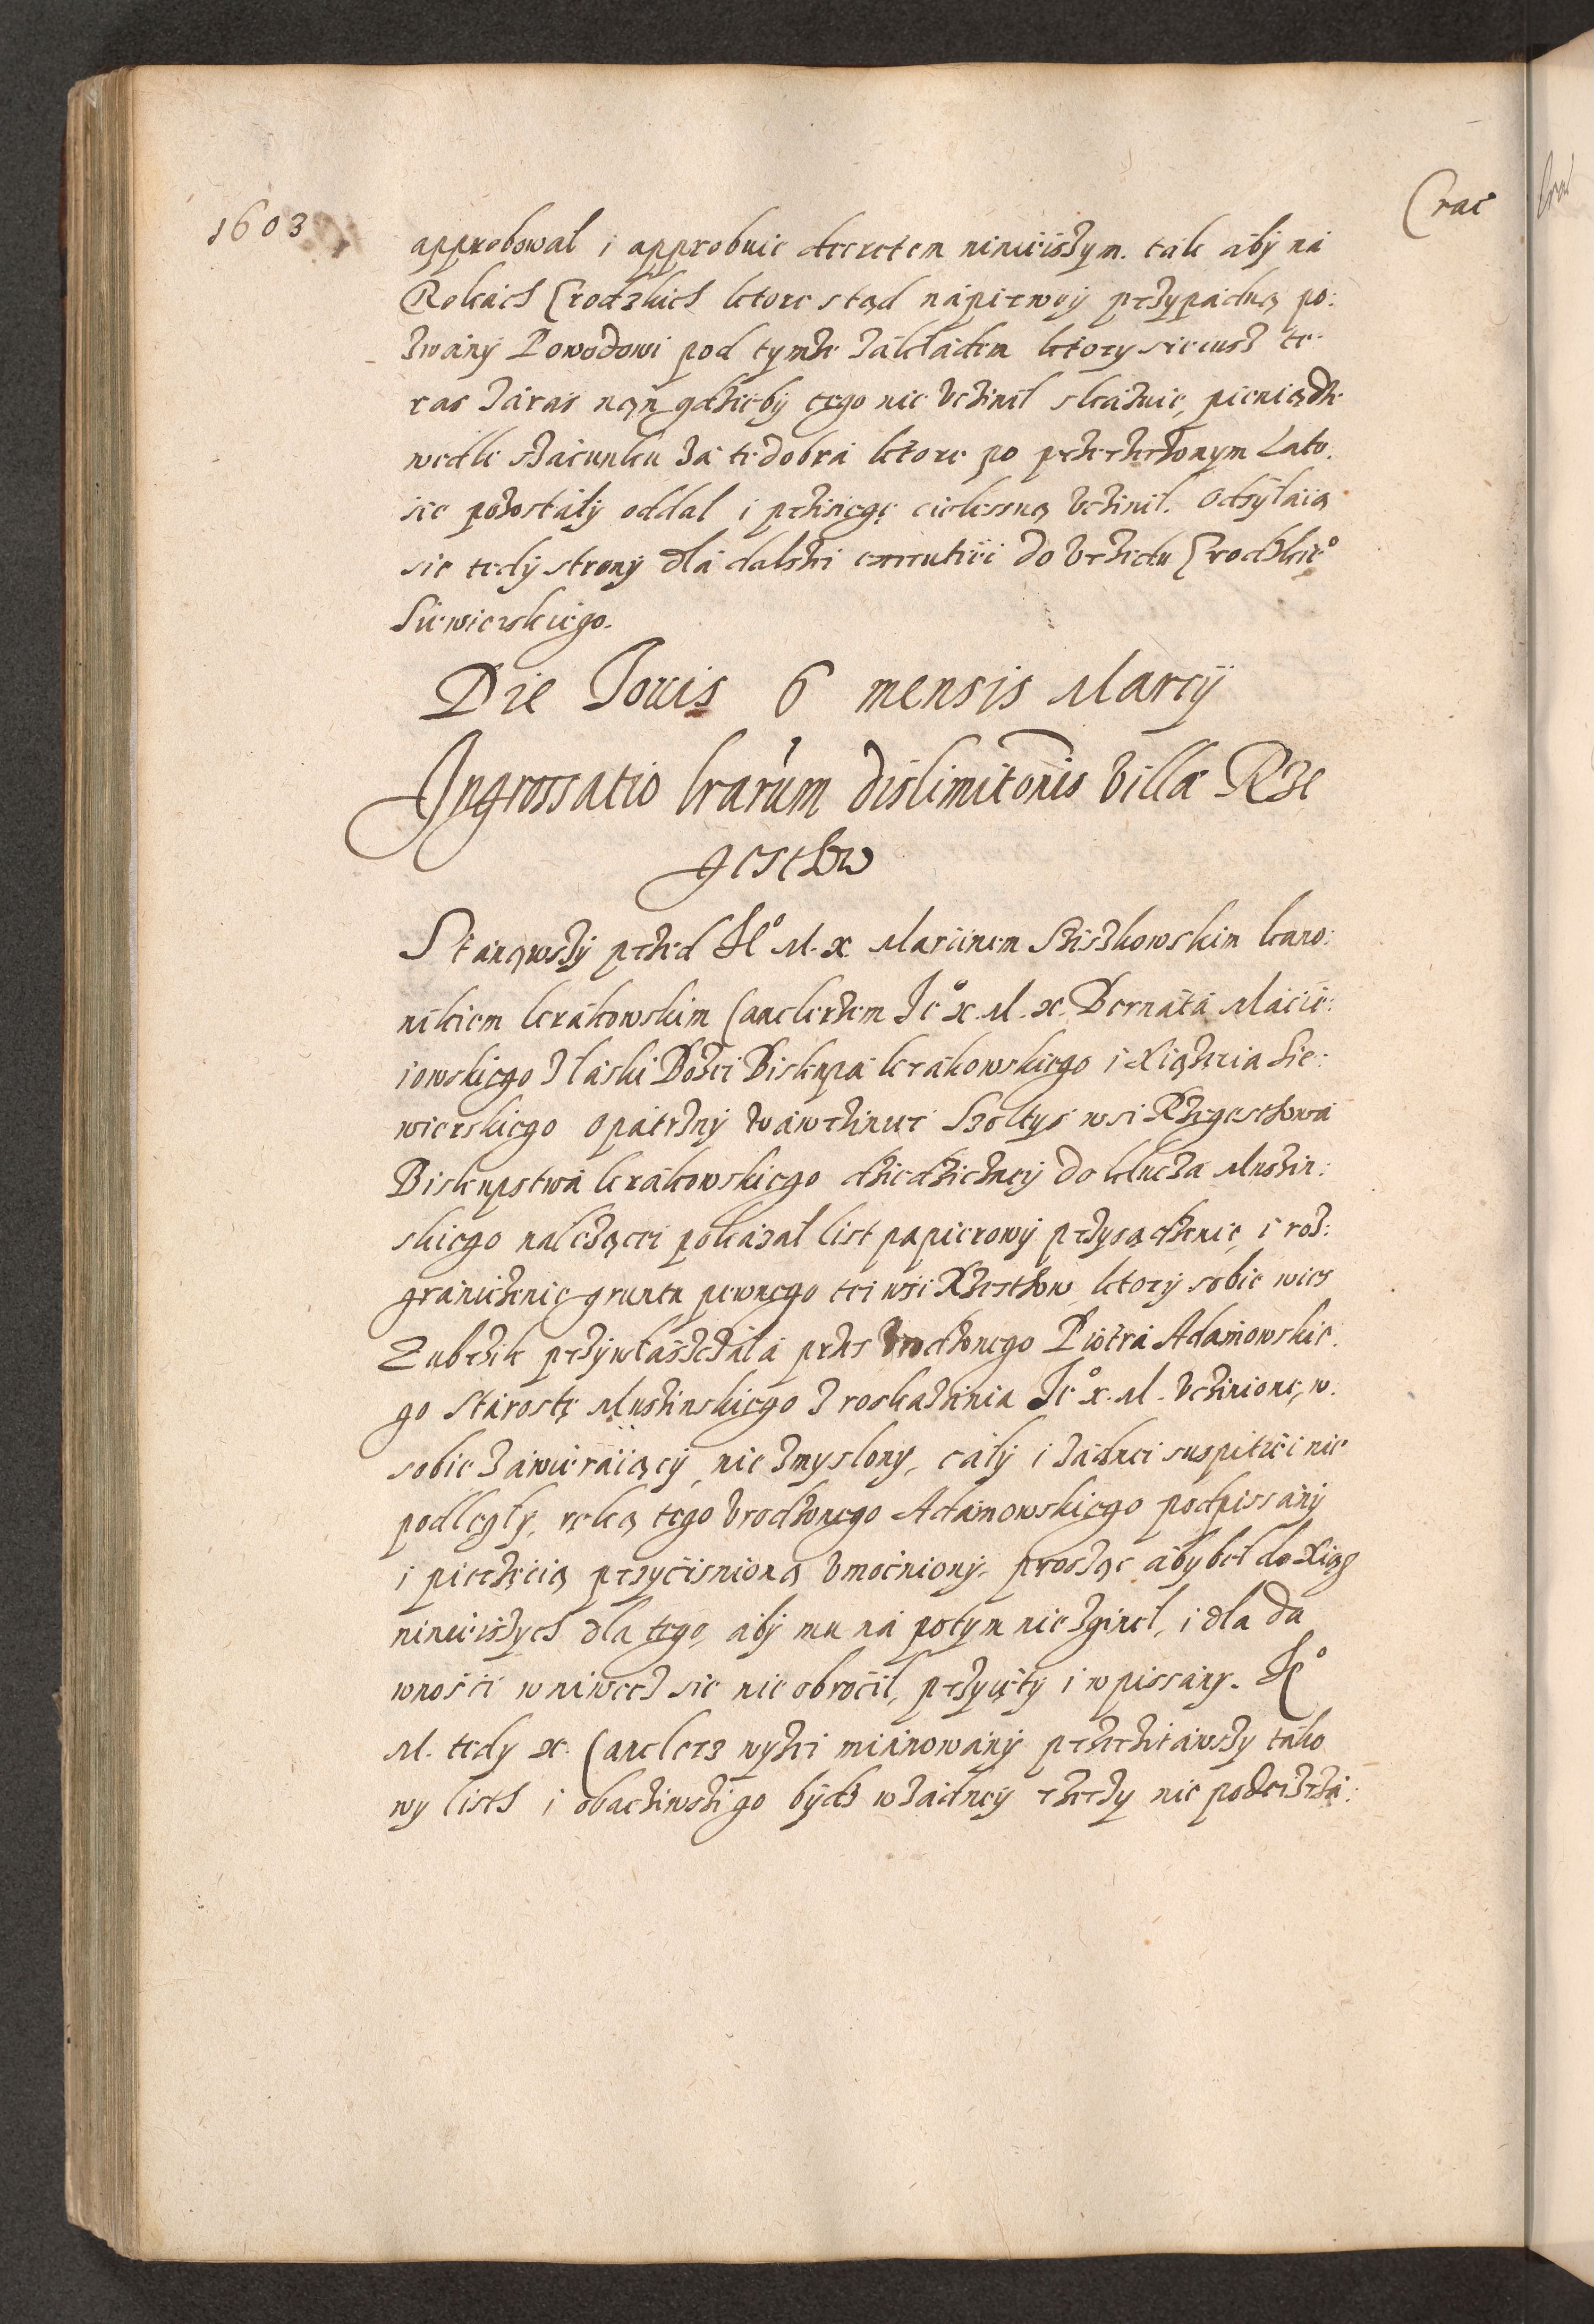 1603
Crac
approbował i approbuie decretem ninieiszym. tak aby na
Rokach Grodzkich ktore stąd napierwey przypadną po:
zwany Powodowi pod tymże zakładem ktory sie iusz te-
ras zaras nąń gdzieby tego nie vczinił skazuie, pieniądze
wedle szacunku za te dobra ktore po przerzeczonym Lato.
sie pozostały oddal i przisięgę cielesną vczinił. Odsyłaią
sie tedy strony dla dalszei executiei do vrzędu Grodzkie°
Siewierskiego.
Die Jouis 6 mensis Marcÿ
Ingrossatio lrarum dislimitonis villæ Rze
gestow
Stanąwszy przed Je° M. x. Marcinem Sziszkowskim kano:
nikiem krakowskim Canclerzem Je° x. M. x. Bernata Macie:
iowskiego z łaski Bożei Biskupa krakowskiego i Xiążęcia Sie:
wierskiego opatrzny Wawrziniec Szołtys wsi Rzegestowa
Biskupstwa krakowskiego dziedziczney do klucza Muszin:
skiego należącei pokazał list papierowy przysądzenie, i roz:
graniczenie gruntu pewnego tei wsi Rzestow, ktory sobie wies
Zubrzik przywłaszczała przes vrodzonego Piotra Adamowskie.
go Starostę Muszinskiego z roskazania Je° x. M. vczinione, w
sobie zawieraiący, nie zmyslony, cały i żadnei suspitiei nie
podległy, ręką tego vrodzonego Adamowskiego podpissany
i pieczęcią przycisnioną vmocniony, prosząc aby beł do Xiąg
ninieiszych dla tego, aby mu na potym nie zgineł, i dla da
wności w niwecz sie nie obrocił, przyięty i wpissany. Je°
M. tedy x. Canclerz wyżei mianowany przeczitawszy tako
wy listh i obacziwszi go bydz w żadney rzeczy nie podeizrza: